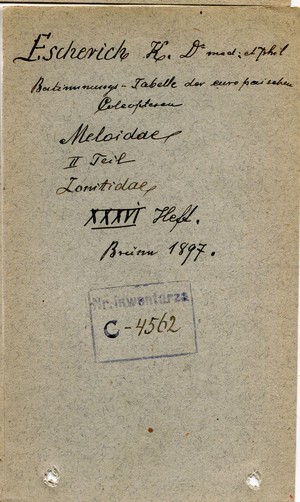 Escherich K. Dr med: et phil
Bestimmungs-Tabelle der europäischen
Coleopteren
Meloidae
II Teil
Zonitidae
XXXVI Heft.
Brünn 1897.
Nr. inwentarza
C-4562